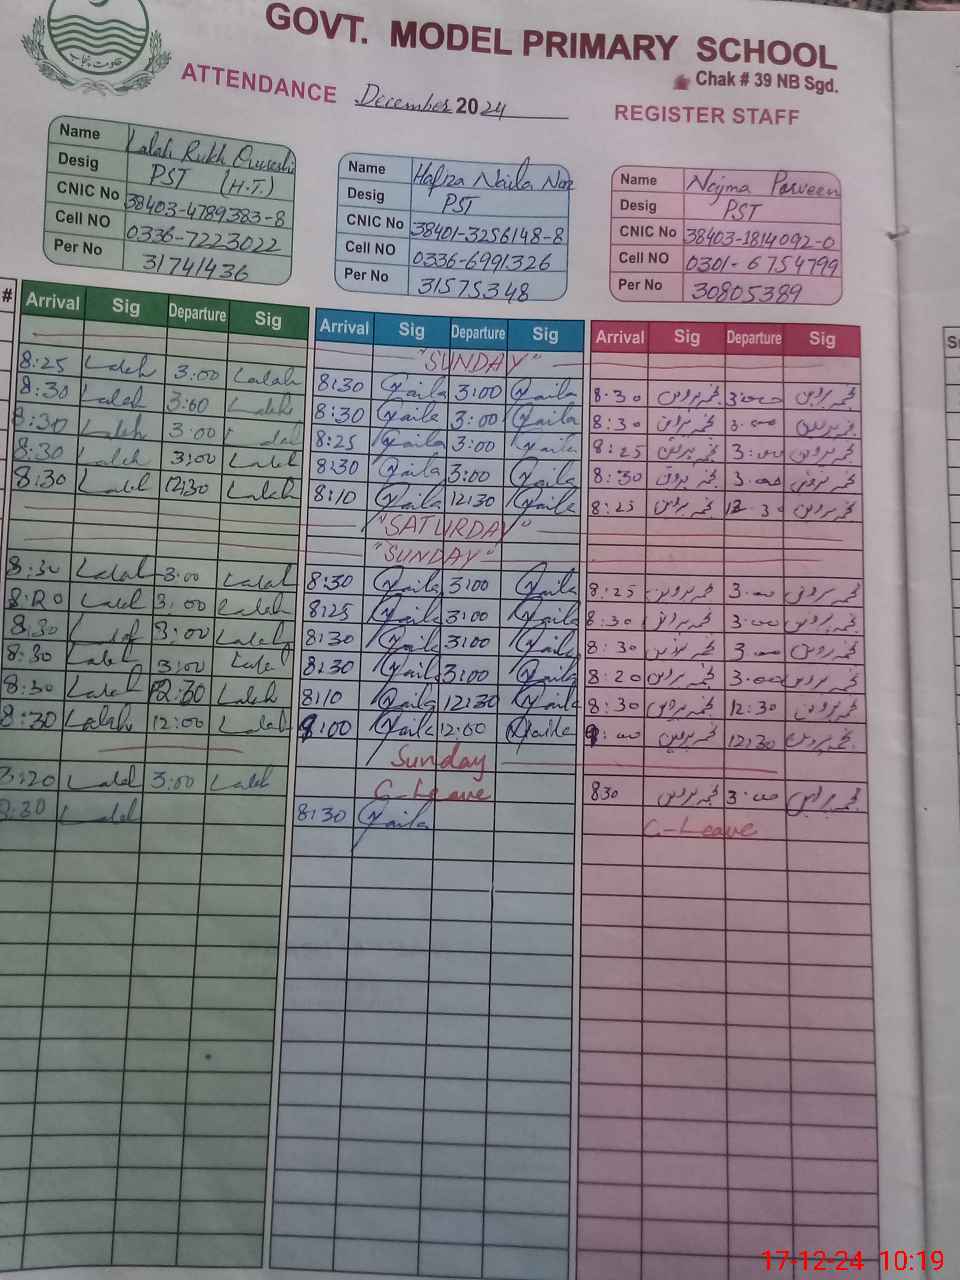 GOVT. MODEL PRIMARY SCHOOL
Chak # 39 NB Sgd.
ATTENDANCE December 2024 REGISTER STAFF
Name Lalah Rukh Qureshi
Desig PST (H.T.)
CNIC No 38403-4789383-8
Cell NO 0336-7223022
Per No 31741436
Name Hafiza Naila Noz
Desig PST
CNIC No 38401-3256148-8
Cell NO 0336-6991326
Per No 31575348
Name Najma Parveen
Desig PST
CNIC No 38403-1814092-0
Cell NO 0301-6754799
Per No 30805389
# Arrival Sig Departure Sig Arrival Sig Departure Sig Arrival Sig Departure Sig
"SUNDAY"
8:25 Laleh 3:00 Lalah 8:30 Naila 3:00 Naila 8:30 نجمہ پروین 3:00 نجمہ پروین
8:30 Laleh 3:00 Laleh 8:30 Naila 3:00 Naila 8:30 نجمہ پروین 3:00 نجمہ پروین
8:30 Laleh 3:00 8:25 Naila 3:00 Naila 8:25 نجمہ پروین 3:00 نجمہ پروین
8:30 Laleh 3:00 Laleh 8:30 Naila 3:00 Naila 8:30 نجمہ پروین 3:00 نجمہ پروین
8:30 Laleh 12:30 Laleh 8:10 Naila 12:30 Naila 8:25 نجمہ پروین 12:30 نجمہ پروین
"SATURDAY"
"SUNDAY"
8:30 Lalah 3:00 Lalah 8:30 Naila 3:00 Naila 8:25 نجمہ پروین 3:00 نجمہ پروین
8:20 Laleh 3:00 Lalah 8:25 Naila 3:00 Naila 8:30 نجمہ پروین 3:00 نجمہ پروین
8:30 3:00 Lalah 8:30 Naila 3:00 Naila 8:30 نجمہ پروین 3:00 نجمہ پروین
8:30 Laleh 3:00 Laleh 8:30 Naila 3:00 Naila 8:20 نجمہ پروین 3:00 نجمہ پروین
8:30 Laleh 12:30 Laleh 8:10 Naila 12:30 Naila 8:30 نجمہ پروین 12:30 نجمہ پروین
8:30 Lalah 12:00 Lalah 9:00 Naila 12:00 Naila 9:00 نجمہ پروین 12:30 نجمہ پروین
Sunday
8:20 Laleh 3:00 Laleh C-Leave 830 نجمہ پروین 3:00 نجمہ پروین
8:30 Laleh 8:30 Naila C-Leave
17-12-24 10:19